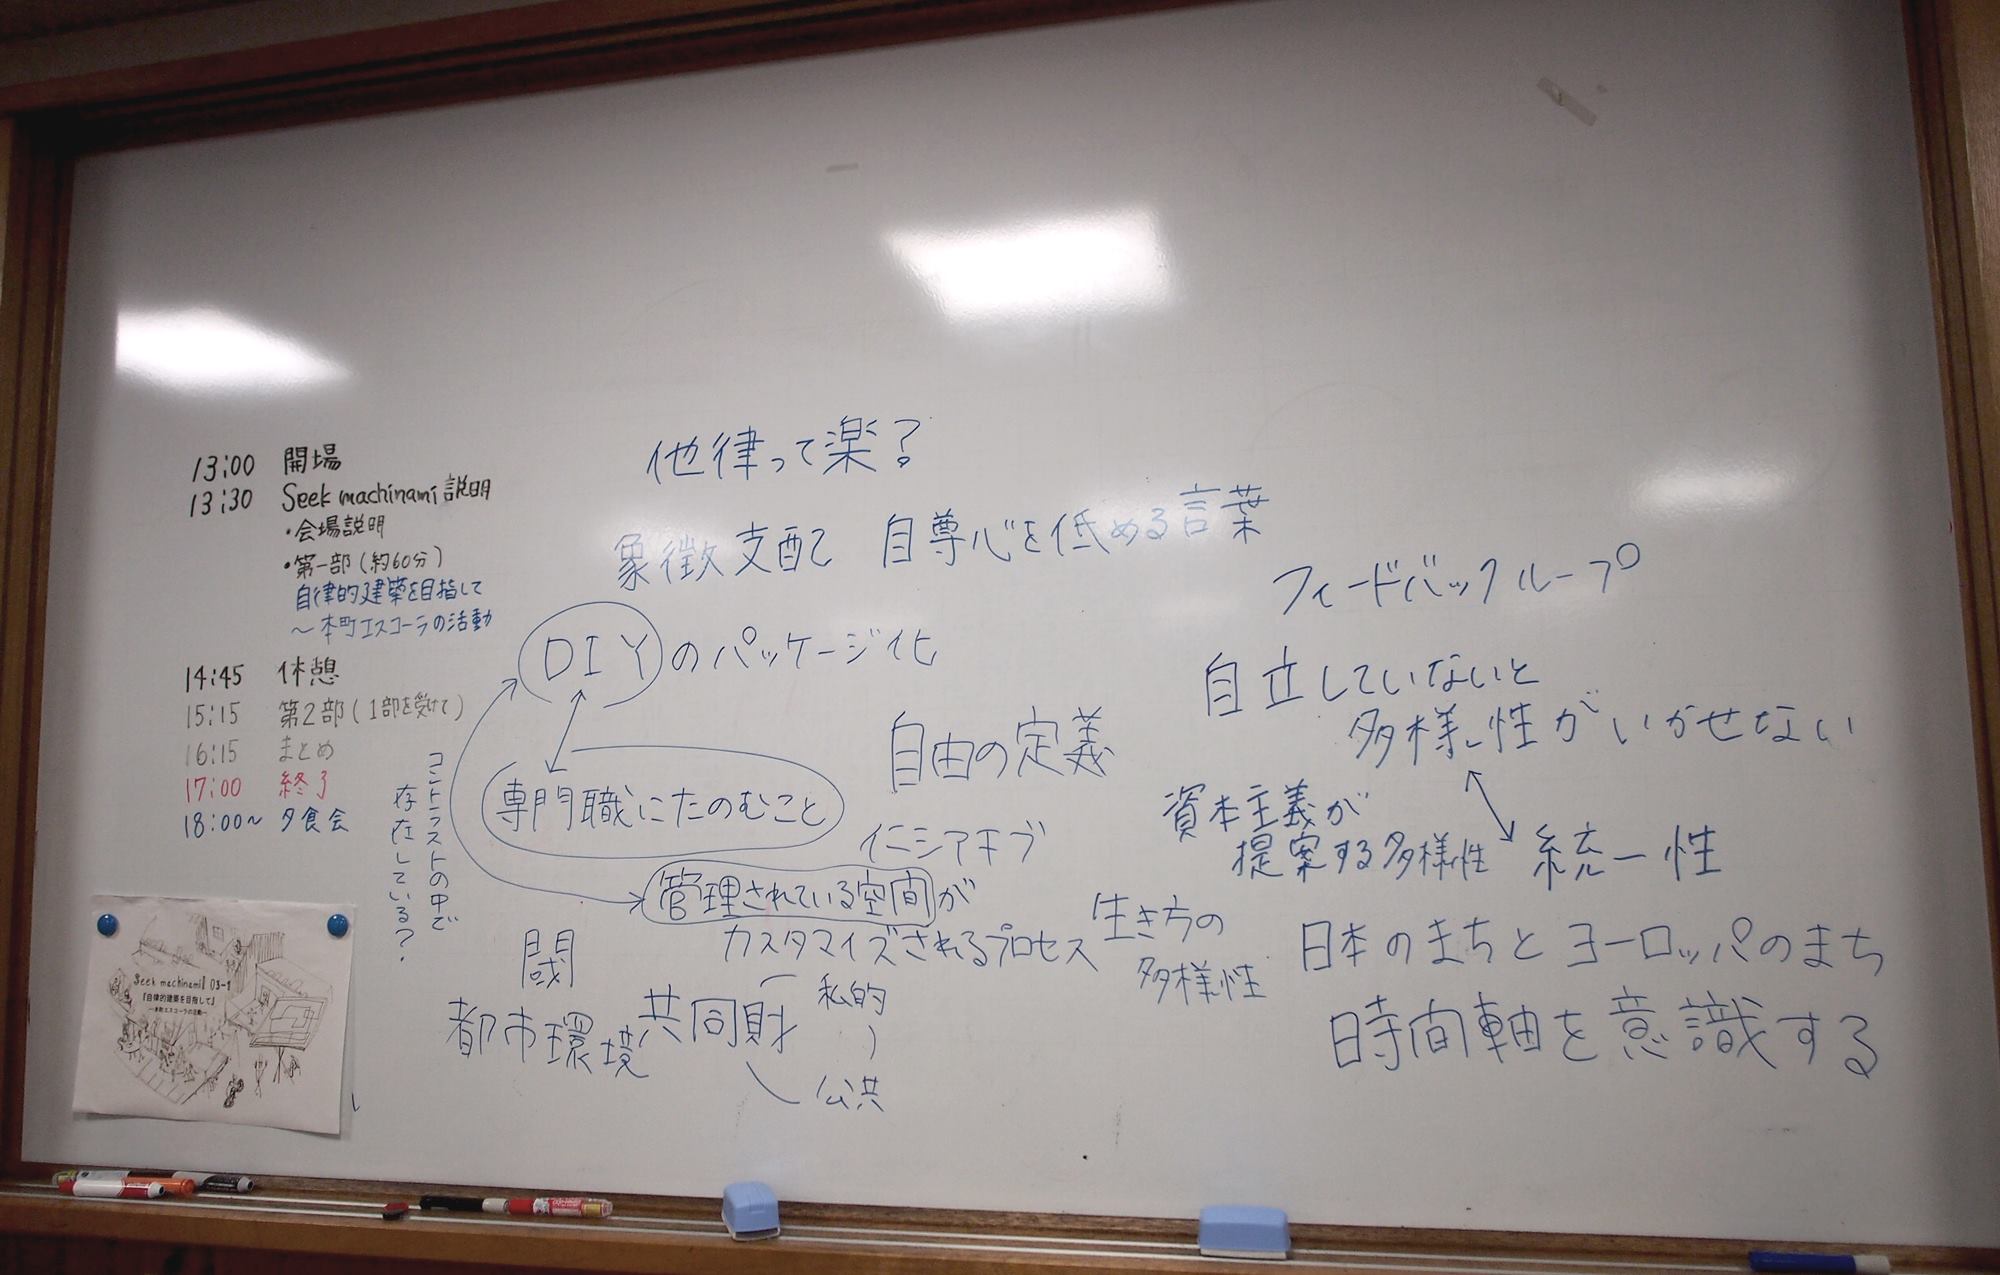 13:00 開場
13:30 Seek machinami 説明
・会場説明
・第一部(約60分)
自律的建築を目指して
〜本町エスコーラの活動
14:45 休憩
15:15 第2部(1部を受けて)
16:15 まとめ
17:00 終了
18:00〜 夕食会
コントラストの中で
存在している?
Seek machinami 03-1
『自律的建築を目指して』
―本町エスコーラの活動―
他律って楽?
象徴支配て 自尊心を低める言葉
DIYのパッケージ化
専門職にたのむこと
自由の定義
イニシアキブ
管理されている空間が
カスタマイズされるプロセス
閾
都市環境
共同財
私的
公共
フィードバックループ
自立していないと
多様性がいかせない
資本主義が
提案する多様性
統一性
生き方の
多様性
日本のまちとヨーロッパのまち
時間軸を意識する